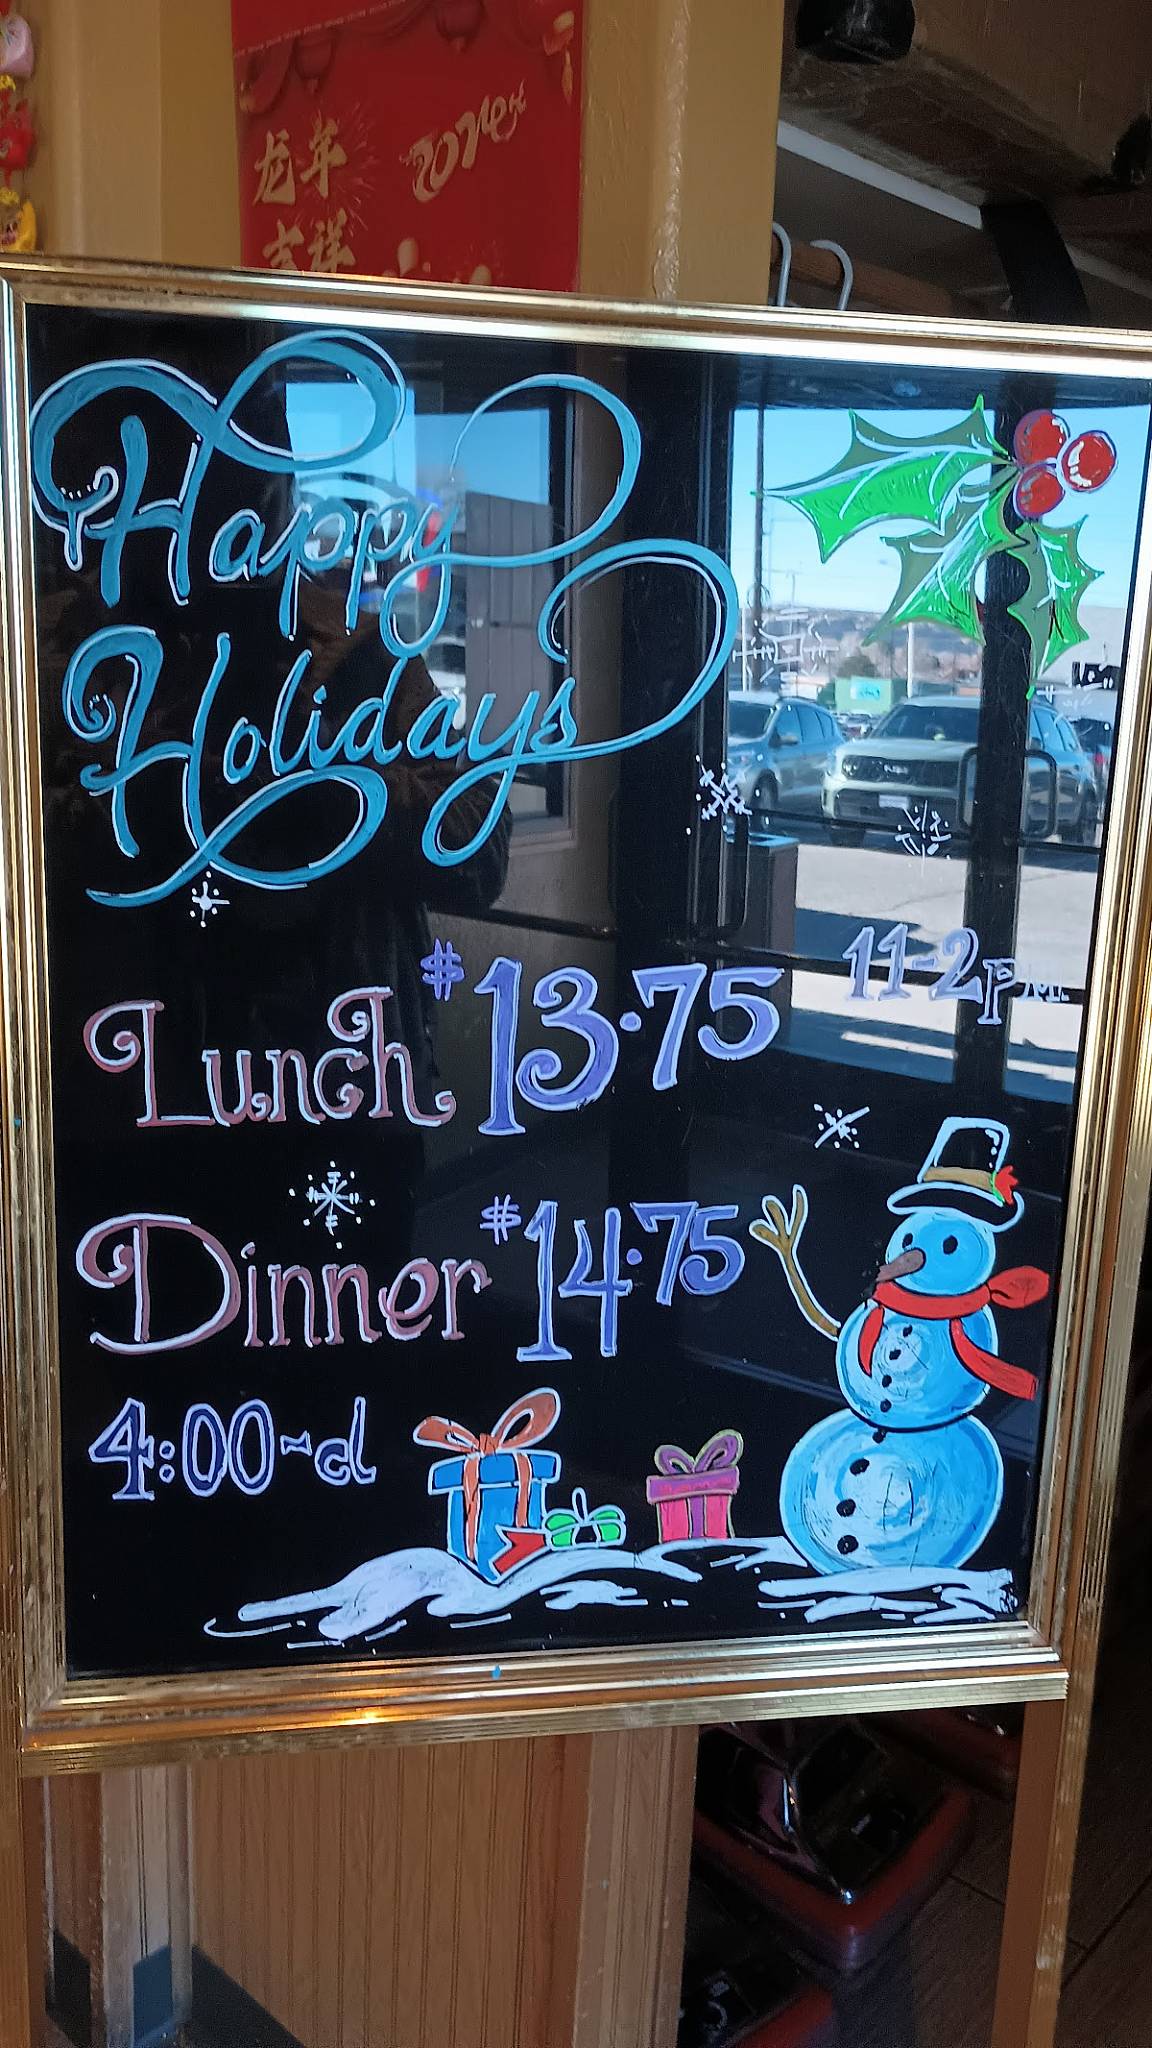 龙年
2024年
吉祥
Happy
Holidays
Lunch $13.75 11-2pm
Dinner $14.75
4:00-cl